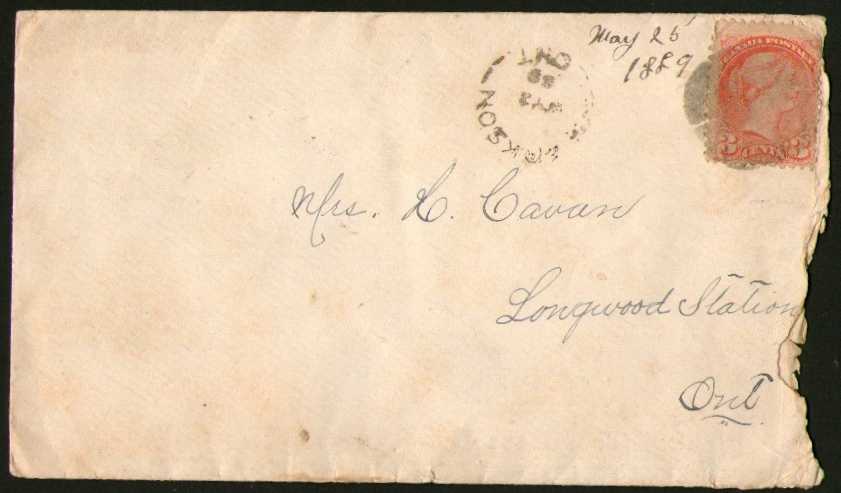 May 25
1889
CANADA POSTAGE
3 CENTS 3
ONT
Mrs. H. Cavan
Longwood Station
Ont